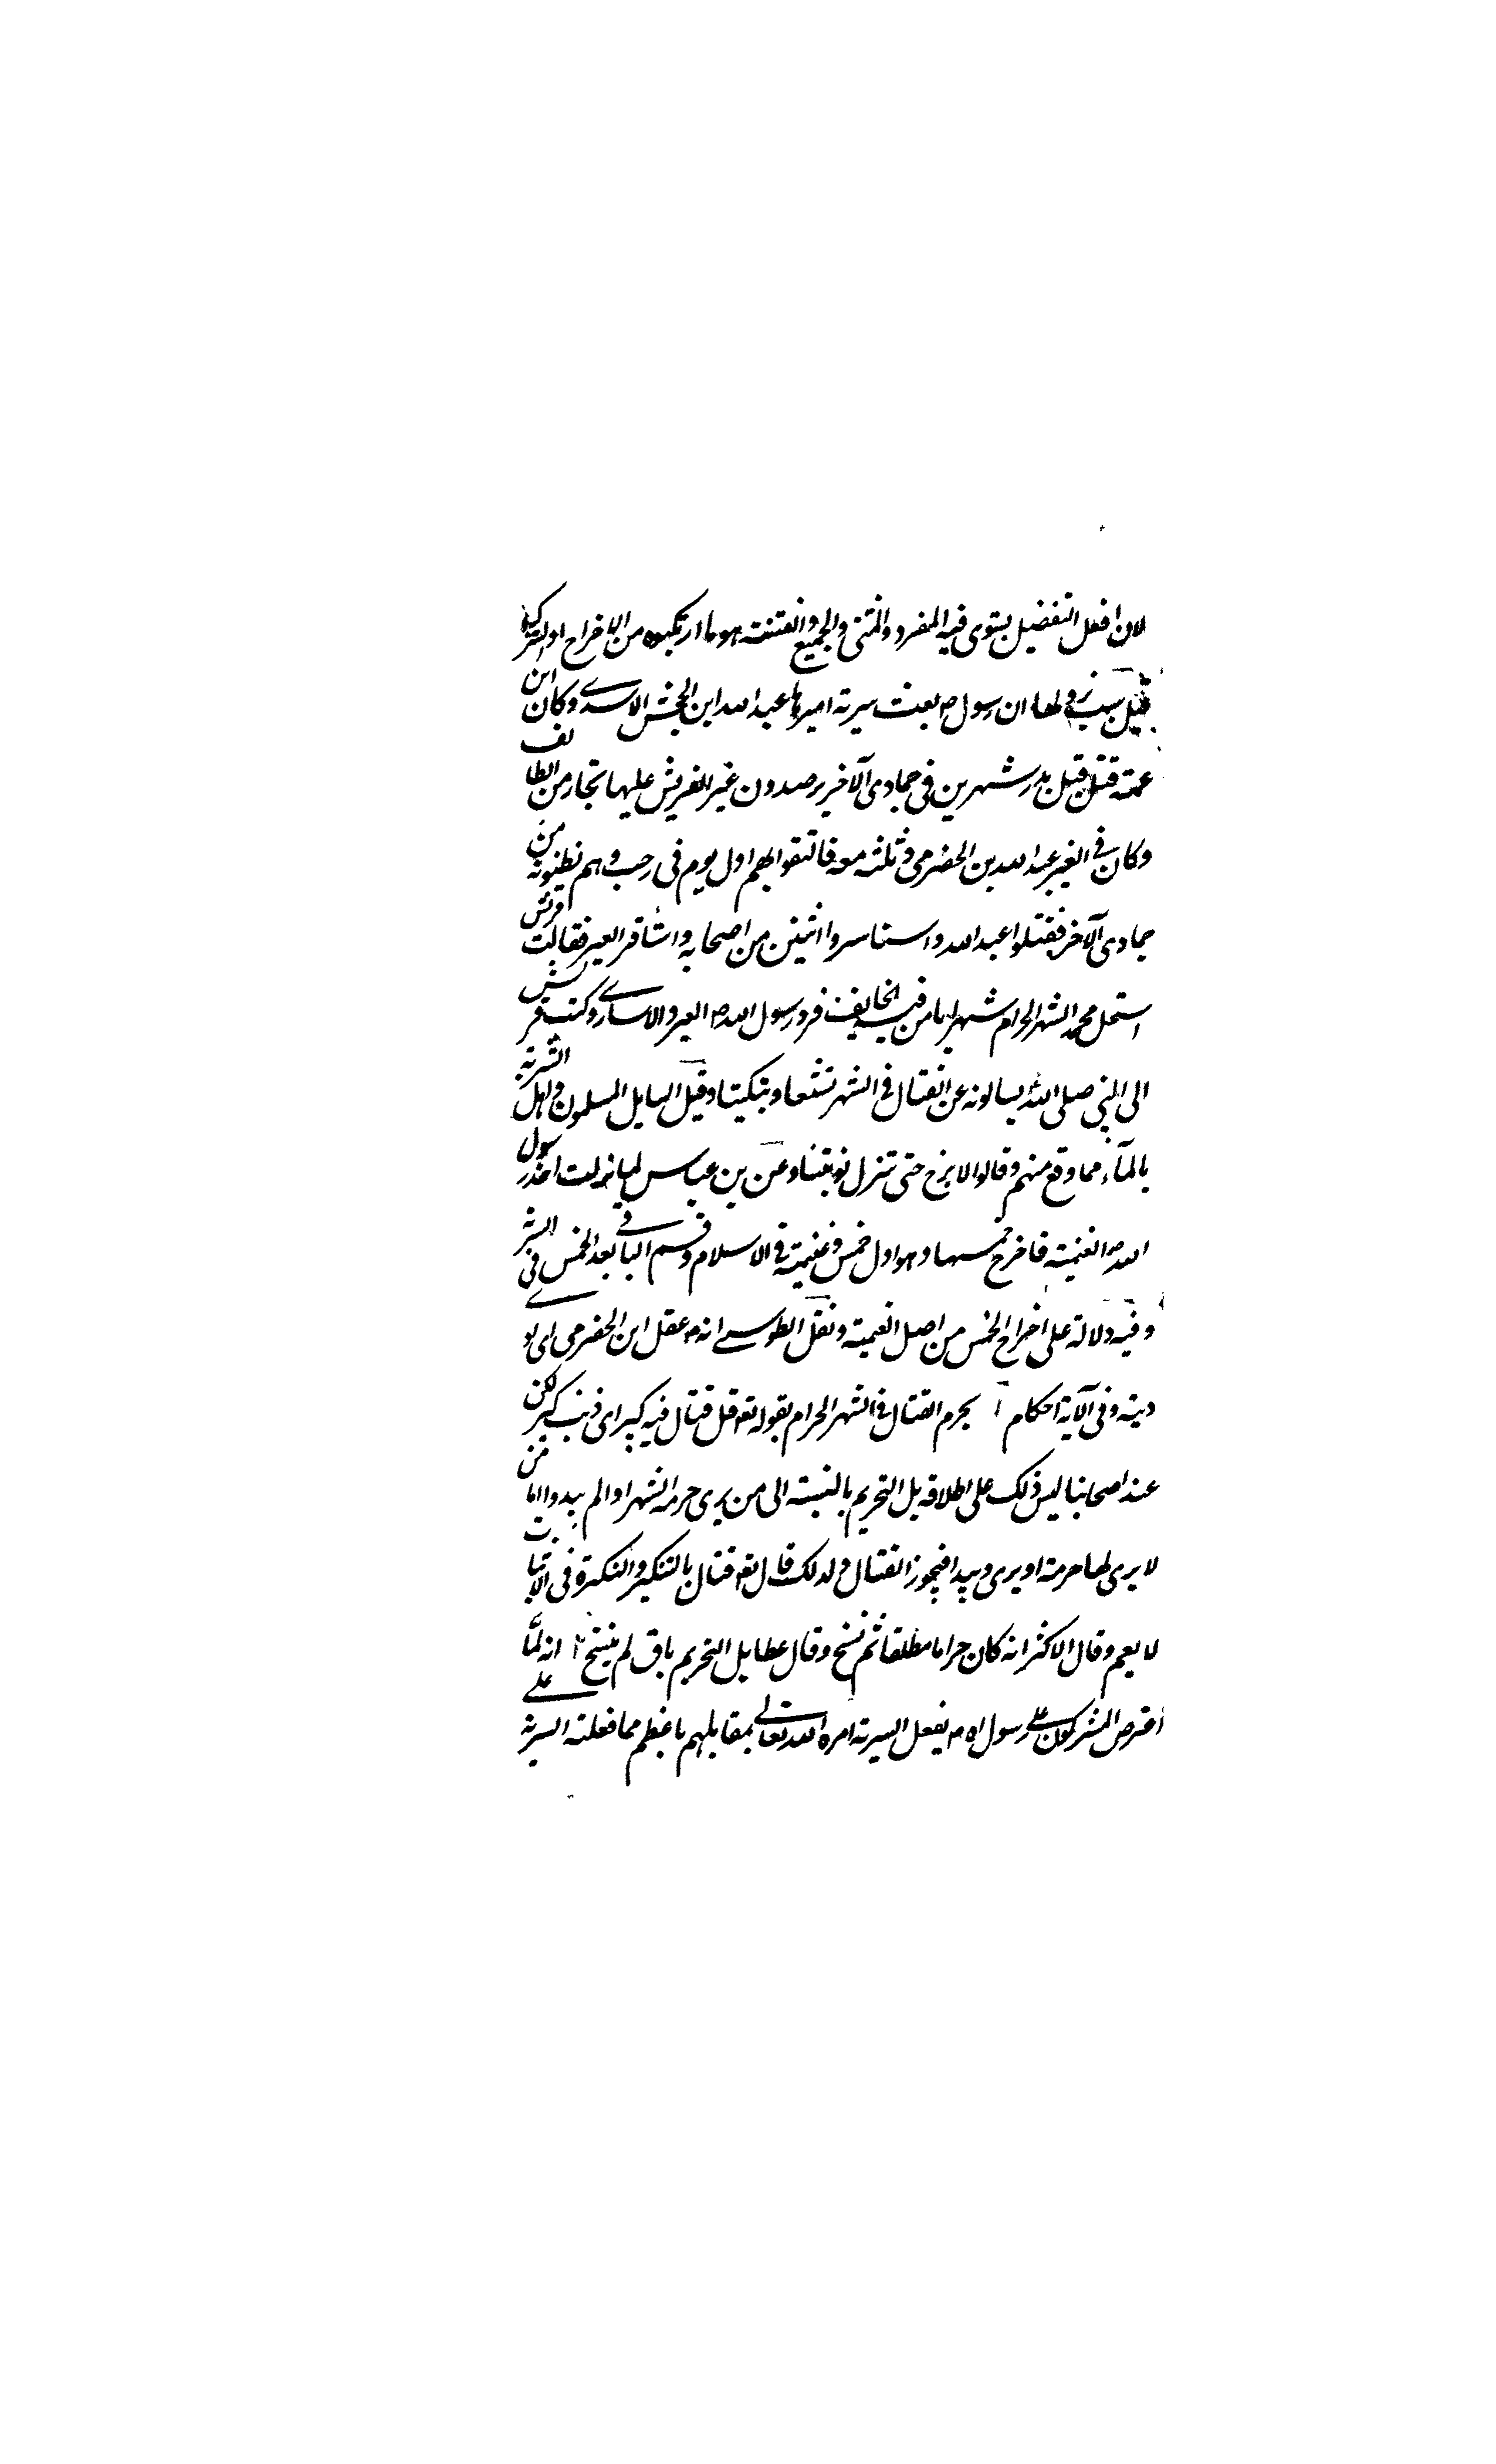 لان افعل التفضيل يستوى فيه المفرد والمثنى والجميع والفتنة هو ما ارتكبوه من الاخراج او الشرك
قيل سبب نزولها ان رسول ص بعث سرية اميرها عبد الله ابن الجحش الاسدى وكان ابن
عمته قتل قبل بدر شهرين فى جمادى الآخر يرصدون عير القريش عليها تجار من الطائف
وكان فى العير عبد الله بن الحضرمى وثلثة معه فالتقوا بهم اول يوم فى رجب وهم يظنونه من
جمادى الآخر فقتلوا عبد الله واستاسروا اثنين من اصحابه واستاقر العير فقالت قريش
استحل محمد الشهر الحرام شهر يا من فيه الخايف فرد رسول الله ص العير والاسارى وكتب قريش
الى النبى صلى الله يسالونه عن القتال فى الشهر تشنعا وتبكيتا وقيل السايل المسلمون واهل السرية
بالمآء مما وقع منهم وقالوا لا نبرح حتى تنزل توبتنا وعن بن عباس لما نزلت اخذ رسول
الله ص الغنيمة فاخرج خمسها وهو اول خمس وغنيمة فى الاسلام وقسم الباقى بعد الخمس فى السر
وفيه دلالة على اخراج الخمس من اصل الغنيمة ونقل الطوسى انه ص عقل ابن الحضرمى اى
ديته وفى الآية احكام ا يحرم القتال فى الشهر الحرام بقوله تعه قل قتال فيه كبير اى ذنب كبير لكن
عند اصحابنا ليس ذلك على اطلاقه بل التحريم بالنسبة الى من يرى حرمة الشهر او الم يبدوا اما من
لا يرى لها حرمة او يرى ويبدا فيجوز القتال ولذلك قال تعه قتال بالتنكير والنكرة فى الاثبات
لا يعم وقال الاكثر انه كان حراما مطلقا ثم نسخ وقال عطا بل التحريم باق لم ينسخ ٢ انه لما
اعترض المشركون على رسول اه ص بفعل السرية امره الله تعالى بمقابلهم باعظم مما فعلته السرية على